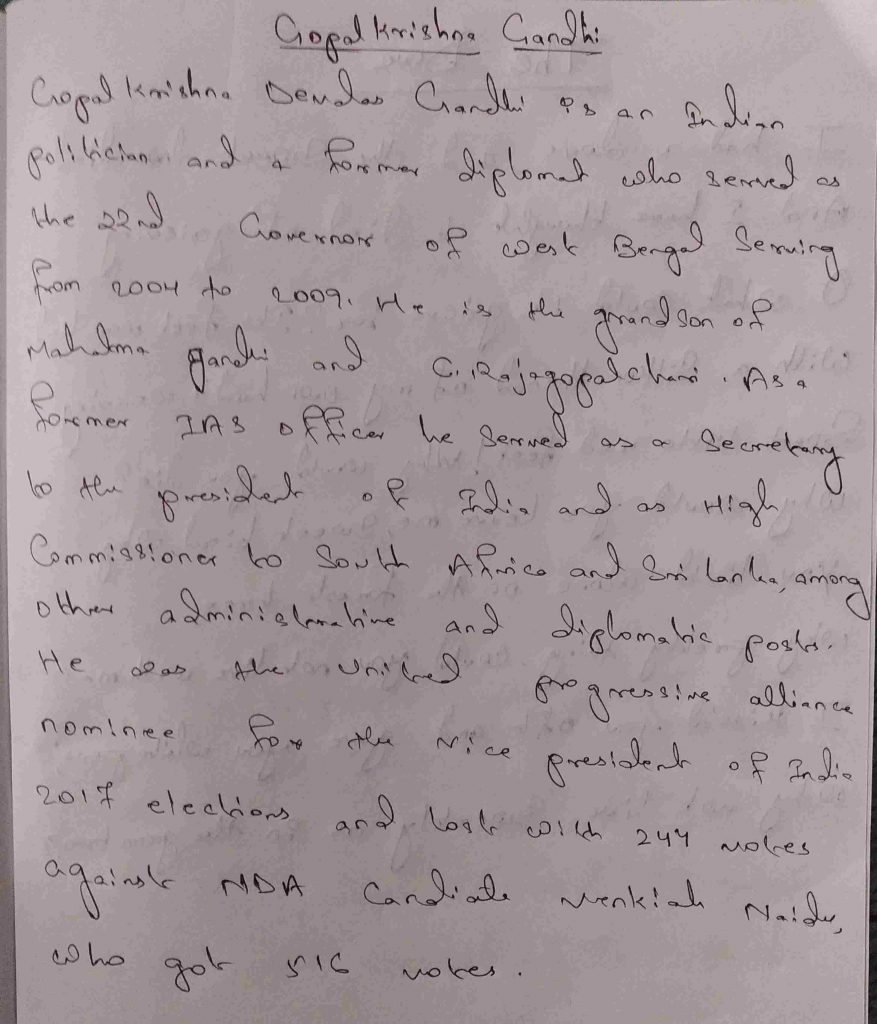 Gopal Krishna Gandhi
Gopal Krishna Devdas Gandhi is an Indian
politician and a former diplomat who served as
the 22nd Governor of west Bengal Serving
from 2004 to 2009. He is the grandson of
Mahatma gandhi and C. Rajagopalchari. As a
former IAS officer he Served as a Secretary
to the president of India and as High
Commissioner to South Africa and Sri lanka, among
other administrative and diplomatic posts.
He was the United progressive alliance
nominee for the vice president of India
2017 elections and lost with 244 votes
against NDA Candiate Venkiah Naidu,
who got 516 votes.